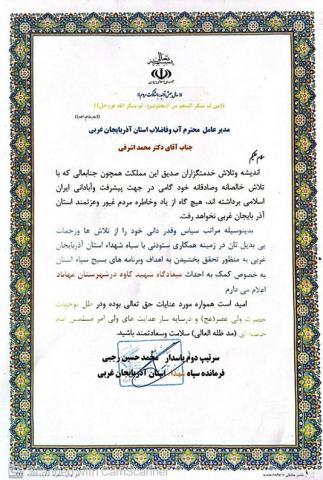 بسمه تعالی
«سال جهش تولید با مشارکت مردم»
((من لم یشکر المنعم من المخلوقین، لم یشکر الله عزوجل))
مدیر عامل محترم آب وفاضلاب استان آذربایجان غربی
جناب آقای دکتر محمد اشرفی
سلام علیکم
اندیشه وتلاش خدمتگزاران صدیق این مملکت همچون جنابعالی که با
تلاش خالصانه وصادقانه خود گامی در جهت پیشرفت وآبادانی ایران
اسلامی برداشته اند، هیچ گاه از یاد وخاطره مردم غیور وعزتمند استان
آذر بایجان غربی نخواهد رفت.
بدینوسیله مراتب سپاس وقدر دانی خود را از تلاش ها وزحمات
بی بدیل تان در زمینه همکاری ستودنی با سپاه شهداء استان آذربایجان
غربی به منظور تحقق بخشیدن به اهداف وبرنامه های بسیج سپاه استان
به خصوص کمک به احداث میعادگاه شهیید کاوه درشهرستان مهاباد
اعلام می دارم
امید است همواره مورد عنایات حق تعالی بوده ودر ظل توجهات
حضرت ولی عصر(عج) و درسایه سار هدایت های ولی امر مسلمین امام
خامنه ای (مد ظله العالی) سلامت وسعادتمند باشید.
سرتیپ دوم پاسدار محمد حسین رجبی
فرمانده سپاه شهداء استان آذربایجان غربی
CamScanner